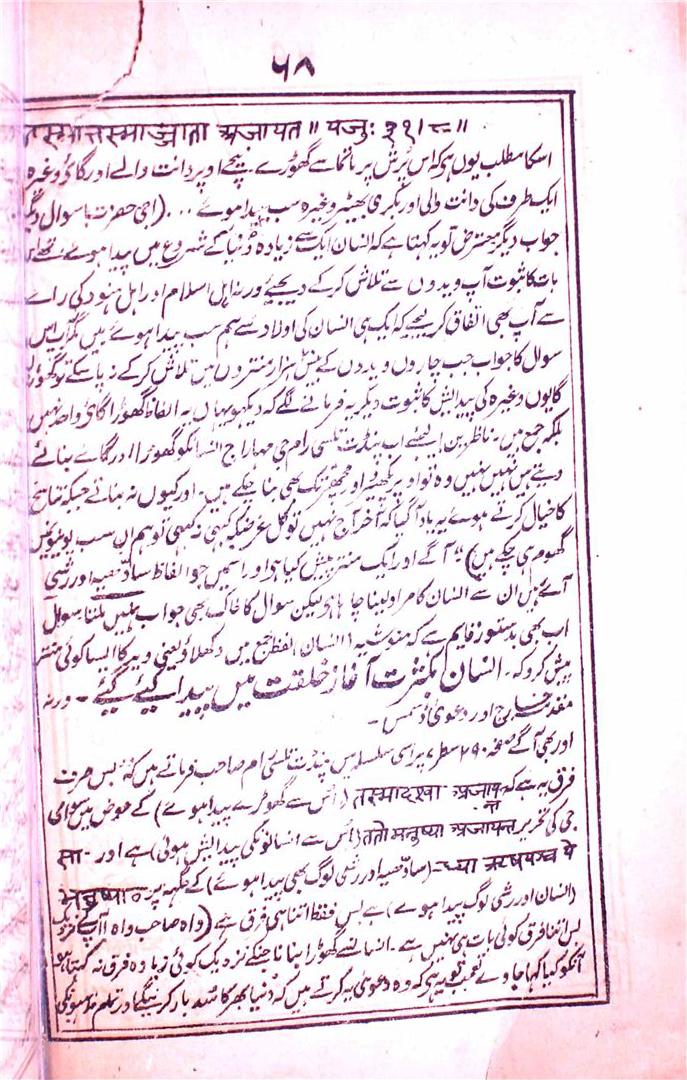 ۵۸
तस्मात्तस्माज्जाता अजायत॥ यजुः ३१।८॥
اسکا مطلب یوں ہو کہ اس پُرش پرماتما سے گھوڑے نیچے اوپر دانت والے اور گائ وغیرہ
ایک طرف کی دانت والی اور بکری بھیڑ وغیرہ سب پیدا ہوئے ... (اجی حضرت با سوال دیگر
جواب دیگر معترض تو یہ کہتا ہے کہ انسان ایک سے زیادہ دُنیا کے شروع میں پیدا ہوئے تھے اس
بات کا ثبوت آپ ویدوں سے تلاش کر کے دیجیے ورنہ اہل اسلام اور اہل ہنود کی راے
سے آپ بھی اتفاق کر لیجے کہ ایک ہی انسان کی اولاد سے ہم سب پیدا ہوئے ہیں مگر اس
سوال کا جواب جب چاروں ویدوں کے بیس ہزار منتروں میں تلاش کر کے نہ پا سکے تو گھوڑ
گایوں وغیرہ کی پیدایش کا ثبوت دیکر یہ فرمانے لگے کہ دیکھو یہاں یہ الفاظ گھوڑا گائ واحد نہیں
بلکہ جمع میں۔ ناظرین لیجئے اب پنڈت تلسی رام جی مہاراج انسانکو گھوڑا اور گاے بنائے
دیتے ہیں نہیں نہیں وہ تو اوپر کچھ اور مچھر تک بھی بنا چکے ہیں۔ اور کیوں نہ بناتے جبکہ تناسخ
کا خیال کرتے ہوئے یہ یاد آ گیا کہ آخر آج نہیں تو کل غرضکہ کبھی نہ کبھی تو ہم ان سب یونیوں میں
گھوم ہی چکے ہیں)" آگے اور ایک منتر پیش کیا ہو اور اسمیں جو الفاظ سادھیہ اور رشی
آئے ہیں ان سے انسان کا مراد لینا چاہا ہو لیکن سوال کا خاک بھی جواب نہیں بلنا سوال
اب بھی بدستور قایم ہے کہ منشیہ (انسان) لفظ جمع میں دکھلاؤ یعنی وید کا ایسا کوئی منتر
پیش کرو کہ۔ انسان بکثرت آغاز خلقت میں پیدا کیئے گیئے۔ ورنہ
مقدمہ خارج اور دعویٰ ڈسمس۔
اور بھی آگے صفحہ ۲۹۰ سطر ۷ پر اسی سلسلہ میں پنڈت تلسی رام صاحب فرماتے ہیں کہ "بس صرف
فرق یہ ہے کہ तस्मादश्वा अजायन्त (اُس سے گھوڑے پیدا ہوے) کے عوض میں سوامی
جی کی تحریر ततो मनुष्या अजायन्त (اُس سے انسانونکی پیدایش ہوئی) ہے اور सा-
ध्या ऋषयश्च ये (سادھیہ اور رشی لوگ بھی پیدا ہوے) کے جگہہ پر मनुष्या ऋ॰
(انسان اور رشی لوگ پیدا ہوے) ہے بس فقط اتنا ہی فرق ہے (واہ صاحب واہ آپکے نزدیک
بس اتنا فرق کوئی بات ہی نہیں ہے۔ انسانسے گھوڑا بنانا جنکے نزدیک کوئی زیادہ فرق نہ رکھتا ہو
انکو کیا کہا جاوے تعجب تو یہ ہی کہ وہ دعویٰ یہ کرتے ہیں کہ دُنیا بھر کا سُدہار کرینگے اور تمام